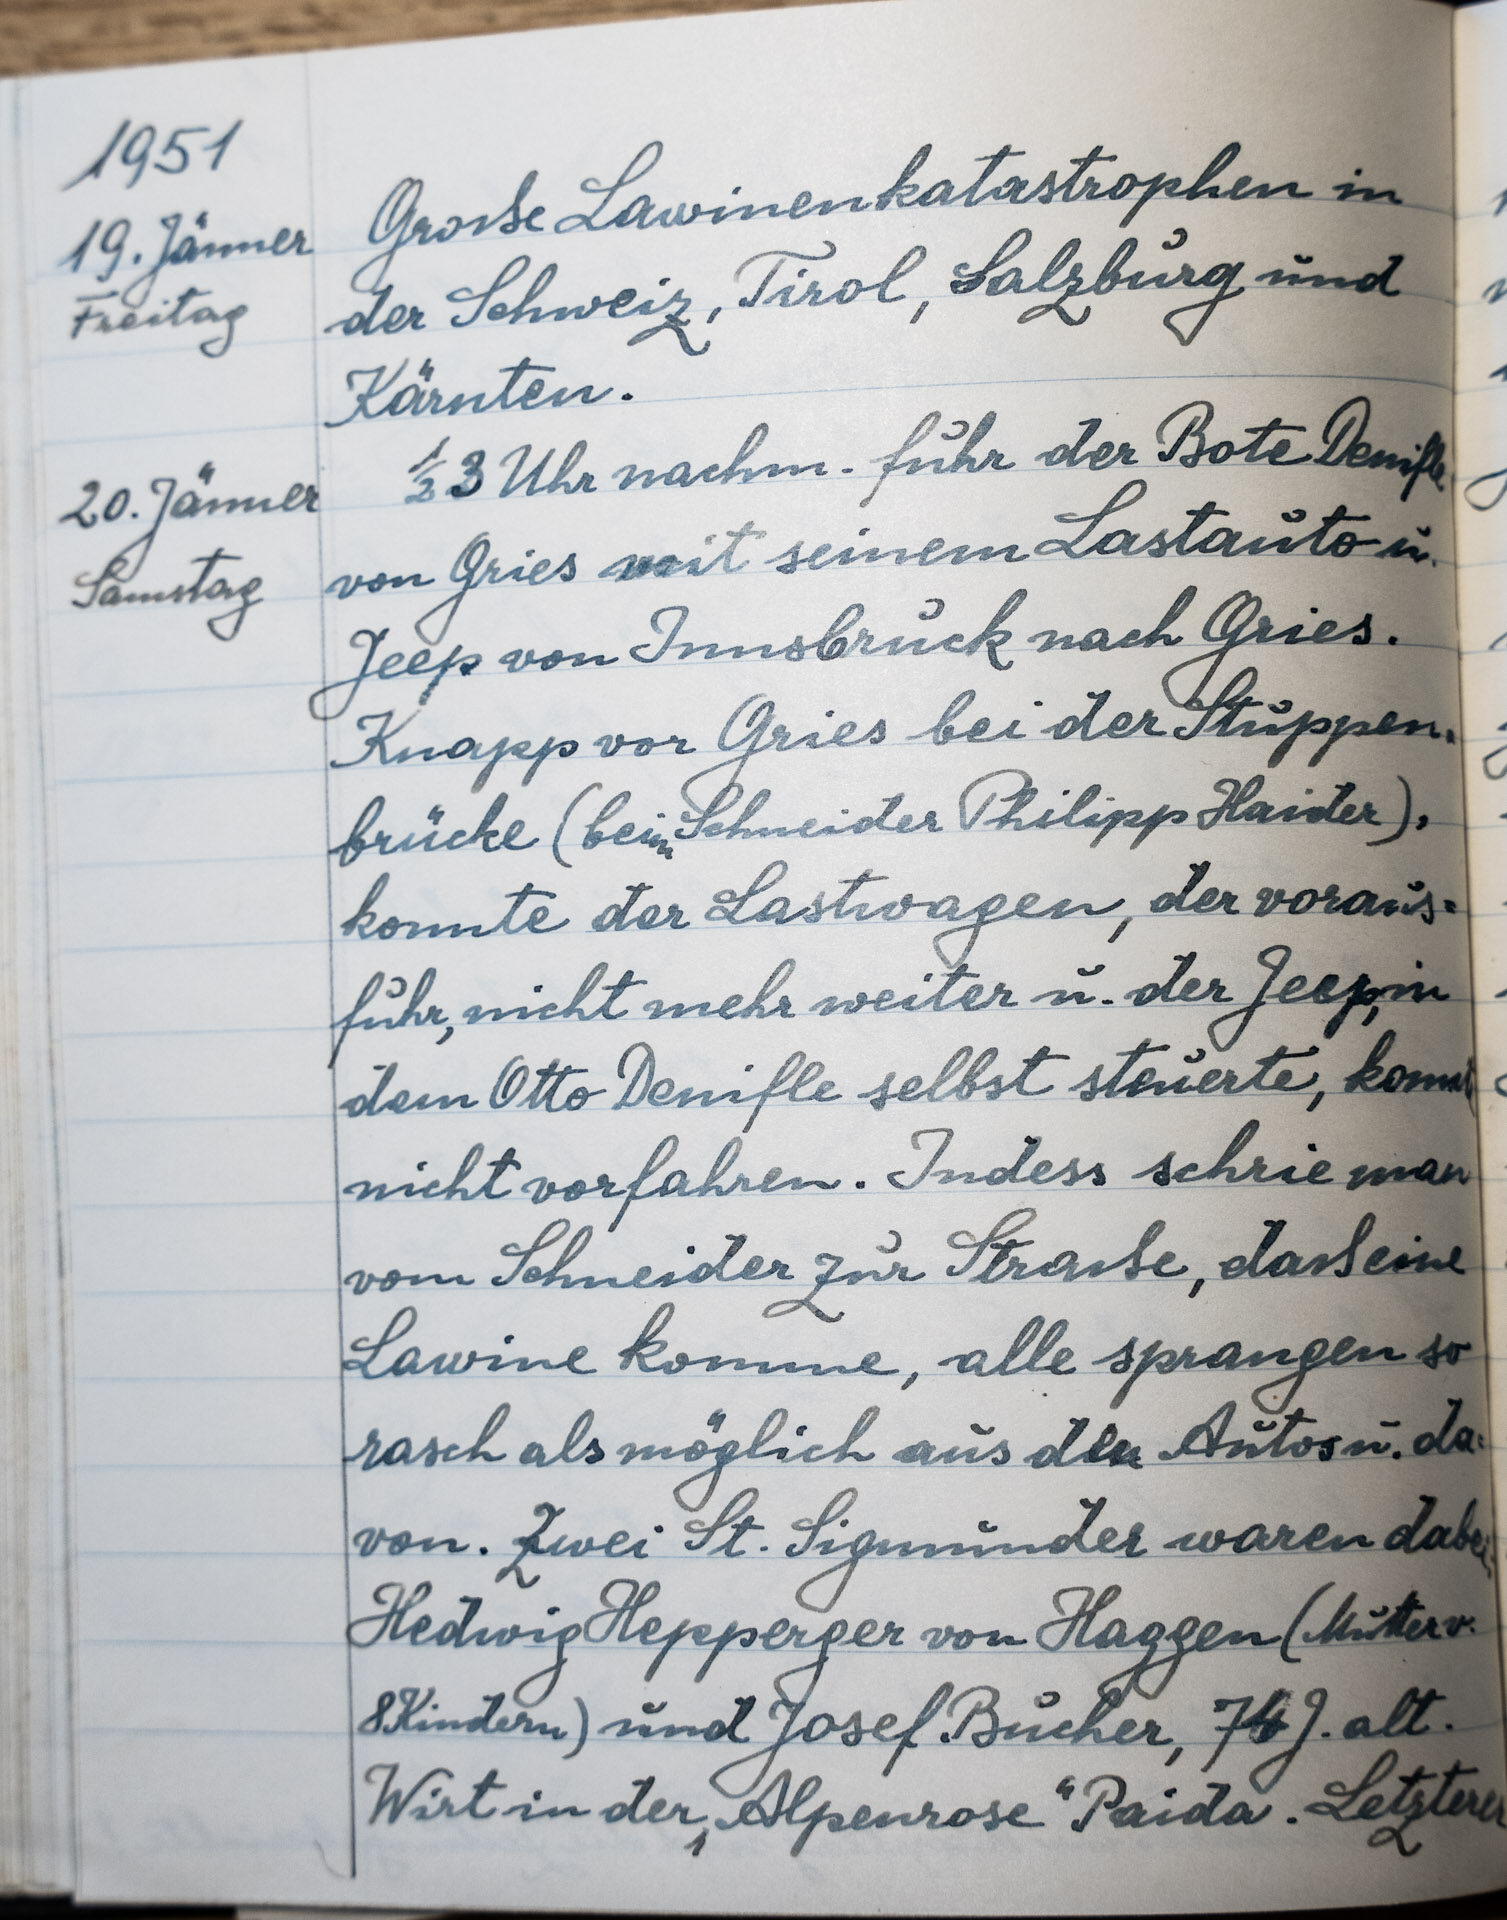 1951
19. Jänner
Freitag
Große Lawinenkatastrophen in
der Schweiz, Tirol, Salzburg und
Kärnten.
20. Jänner
Samstag
½ 3 Uhr nachm. fuhr der Bote Denifle
von Gries mit seinem Lastauto u.
Jeep von Innsbruck nach Gries.
Knapp vor Gries bei der Stuppen-
brücke (beim Schneider Philipp Haider),
konnte der Lastwagen, der voraus=
fuhr, nicht mehr weiter u. der Jeep, in
dem Otto Denifle selbst steuerte, konnt
nicht vorfahren. Indess schrie man
vom Schneider zur Straße, daß eine
Lawine komme, alle sprangen so
rasch als möglich aus den Autos u. da=
von. Zwei St. Sigmunder waren dabei,
Hedwig Hepperger von Haggen (Mutter v.
8 Kindern) und Josef Bucher, J. alt.
Wirt in der „Alpenrose" Paida. Letzterer